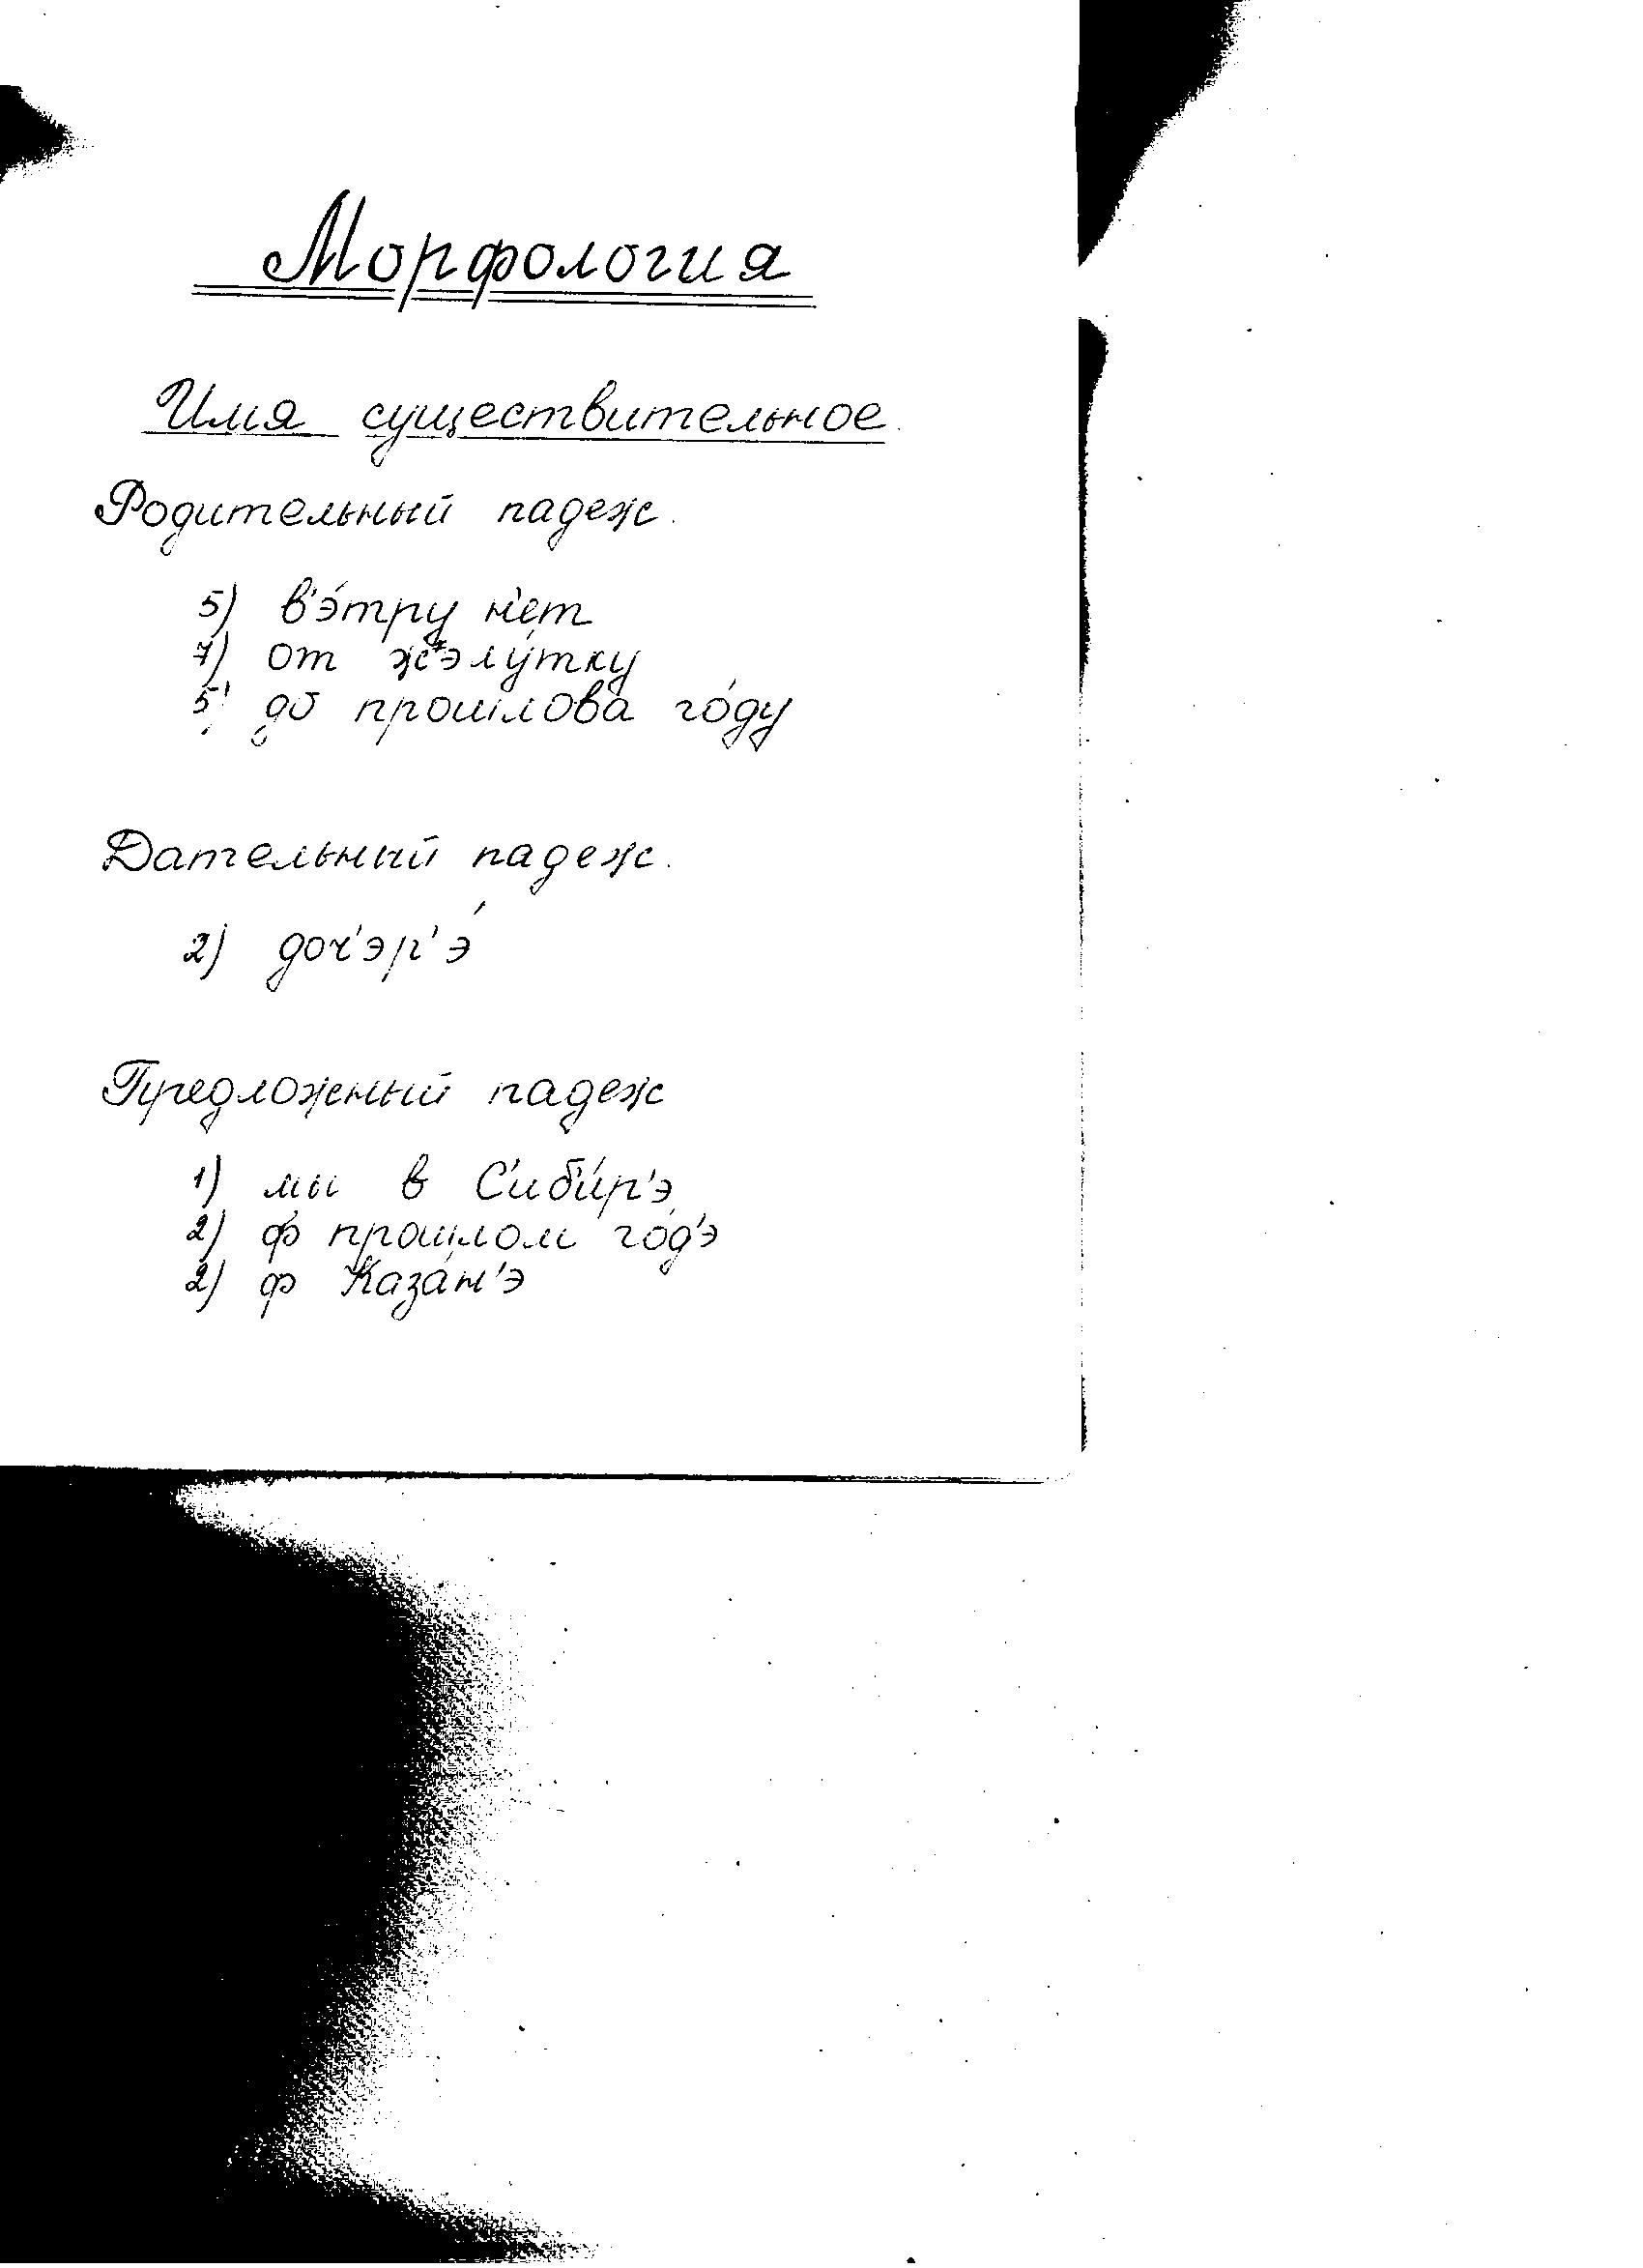 Морфология
Имя существительное.
Родительный падеж.
5) в'э́тру н'ет
7) от жэлу́тку
5) до прошлова го́ду
Дательный падеж.
2) доч'эр'э́
Предложный падеж
1) мы в С'иби́р'э
2) ф прошлом го́д'э
2) ф Каза́н'э